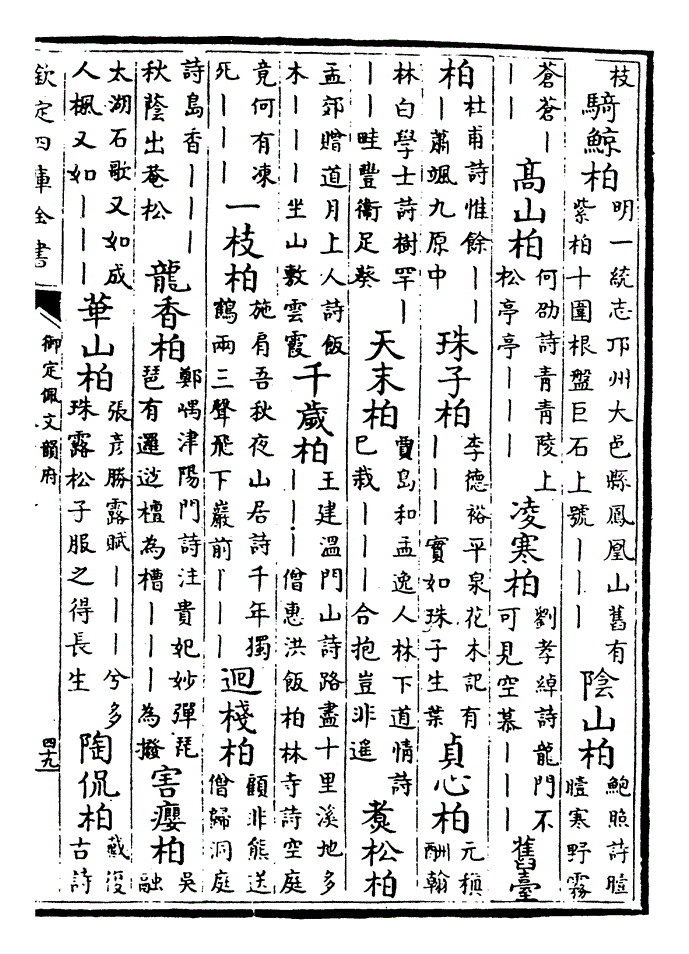 枝 騎鯨柏 明一統志邛州大邑縣鳳凰山舊有紫柏十圍根盤巨石上號｜｜｜ 陰山柏 鮑照詩曀曀寒野霧
蒼蒼｜｜｜ 高山柏 何劭詩青青陵上松亭亭｜｜｜ 凌寒柏 劉孝綽詩龍門不可見空慕｜｜｜ 舊臺
柏 杜甫詩惟餘｜｜｜蕭颯九原中 珠子柏 李德裕平泉花木記有｜｜｜實如珠子生葉 貞心柏 元稹酬翰
林白學士詩樹罕｜｜｜畦豐衛足葵 天末柏 賈島和孟逸人林下道情詩巳栽｜｜｜合抱豈非遙 煮松柏
孟郊贈道月上人詩飯木｜｜｜坐山敷雲霞 千歲柏 王建溫門山詩路盡十里溪地多｜｜｜僧惠洪飯柏林寺詩空庭
竟何有凍死｜｜｜ 一枝柏 施肩吾秋夜山居詩千年獨鶴兩三聲飛下巖前｜｜｜ 迴棧柏 顧非熊送僧歸洞庭
詩島香｜｜｜秋蔭出菴松 龍香柏 鄭嵎津陽門詩注貴妃妙彈琵琶有邏逤檀為槽｜｜｜為撥 害癭柏 吳融
太湖石歌又如成人楓又如｜｜｜ 華山柏 張彥勝露賦｜｜｜兮多珠露松子服之得長生 陶侃柏 戴復古詩
欽定四庫全書 御定佩文韻府 四十九